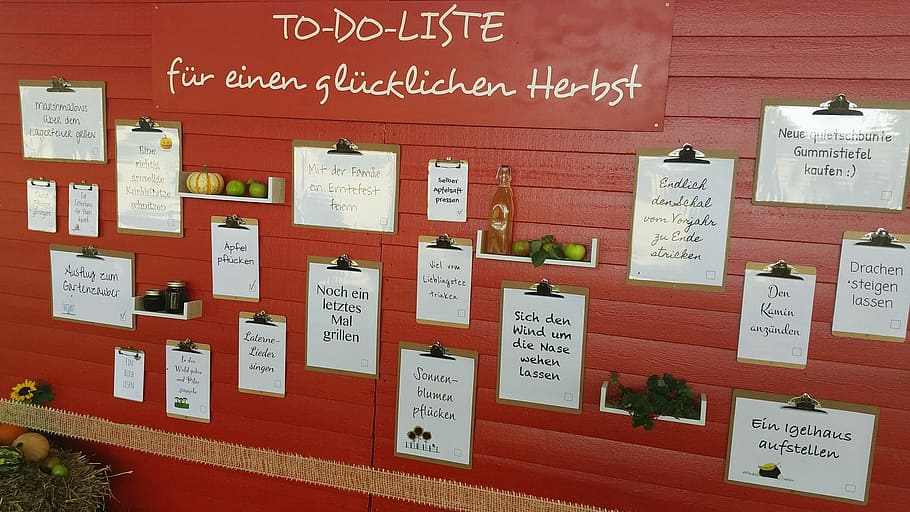 TO-DO-LISTE
für einen glücklichen Herbst
Marshmallows
über dem
Lagerfeuer grillen
Eine
richtig
gruselige
Kürbisfratze
schnitzen
Mit der Familie
ein Erntefest
feiern
Selber
Apfelsaft
pressen
Endlich
den Schal
vom Vorjahr
zu Ende
stricken
Neue quietschbunte
Gummistiefel
kaufen :)
Apfel
pflücken
Ausflug zum
Gartenzauber
Noch ein
letztes
Mal
grillen
Viel vom
Lieblingstee
trinken
Sich den
Wind um
die Nase
wehen
lassen
Den
Kamin
anzünden
Drachen
steigen
lassen
Laterne-
Lieder
singen
Ein
Buch
lesen
In den
Wald gehen
und Pilze
sammeln
Sonnen-
blumen
pflücken
Ein Igelhaus
aufstellen